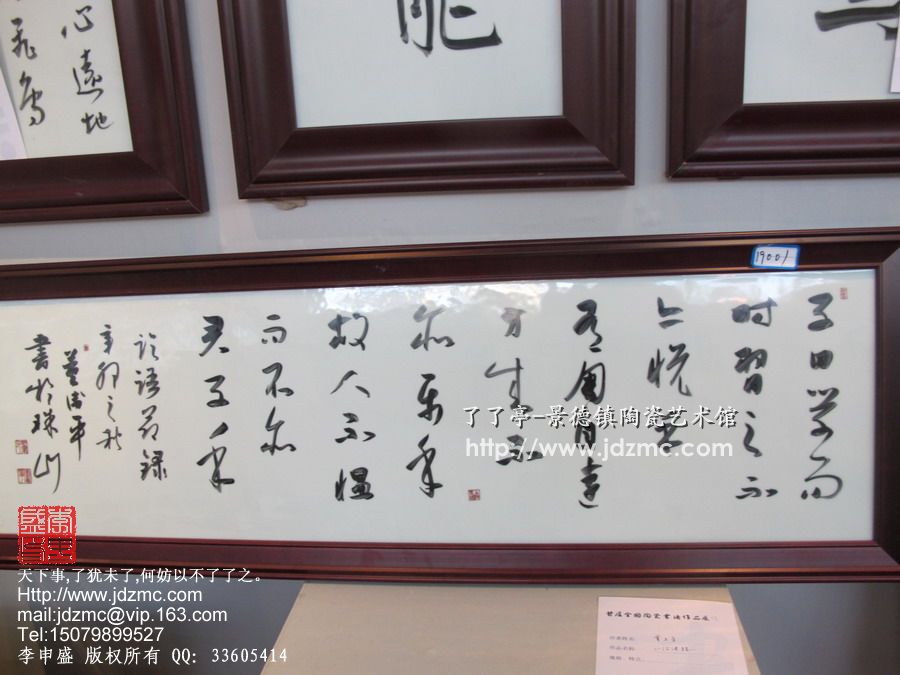 心遠地
能
19001
子曰學而
时習之不
亦悦乎
有朋自遠
方来不
亦樂乎
故人不愠
而不亦
君子乎
論語節録
辛卯之秋
書於珠山
了了亭-景德镇陶瓷艺术馆
http://www.jdzmc.com
天下事,了犹未了,何妨以不了了之。
Http://www.jdzmc.com
mail:jdzmc@vip.163.com
Tel:15079899527
李申盛 版权所有 QQ: 33605414